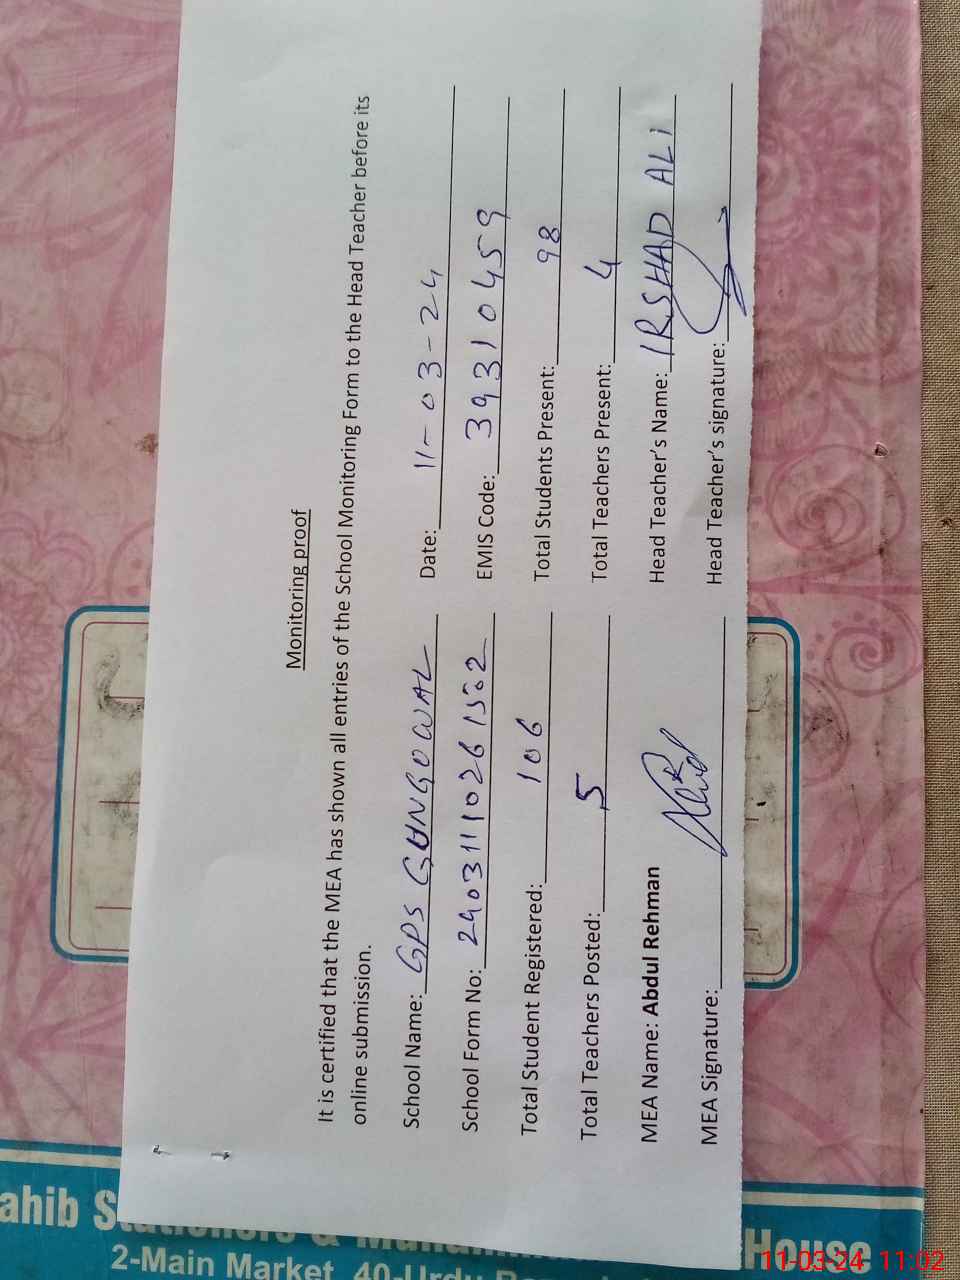 Monitoring proof
It is certified that the MEA has shown all entries of the School Monitoring Form to the Head Teacher before its
online submission.
School Name: GPS GUNGOWAL Date: 11-03-24
School Form No: 24031110261502 EMIS Code: 39310459
Total Student Registered: 106 Total Students Present: 98
Total Teachers Posted: 5 Total Teachers Present: 4
MEA Name: Abdul Rehman Head Teacher's Name: IRSHAD ALI
MEA Signature: Head Teacher's signature:
ahib
House
2-Main Market 40-Urdu
11-03-24 11:02